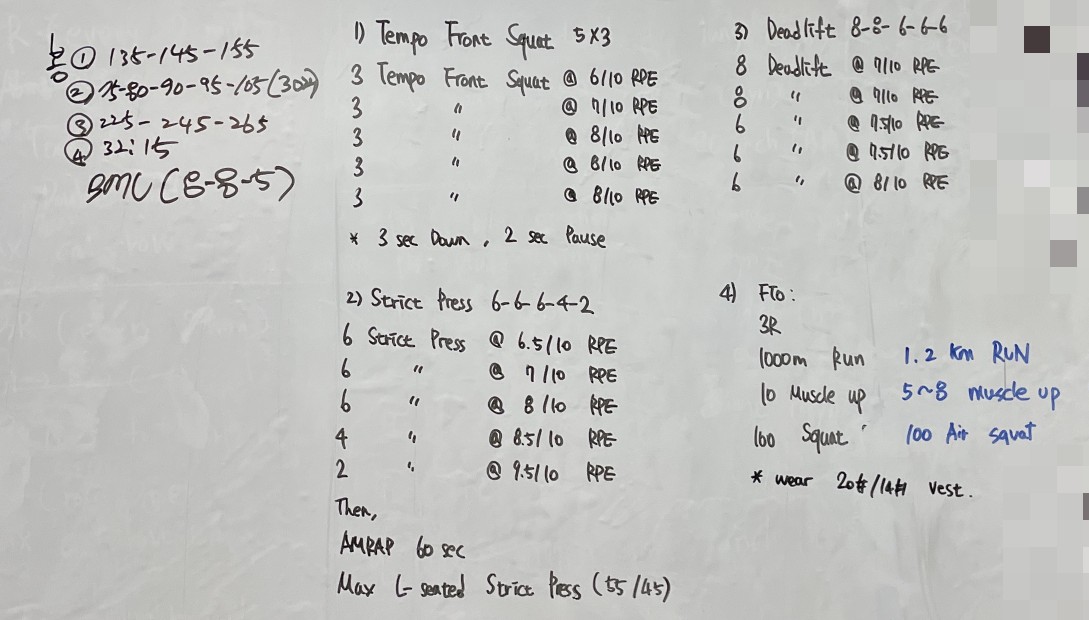 봉 ① 135-145-155
② 75-80-90-95-105(30개)
③ 225-245-265
④ 32:15
BMU(8-8-5)
1) Tempo Front Squat 5x3
3 Tempo Front Squat @ 6/10 RPE
3 " @ 7/10 RPE
3 " @ 8/10 RPE
3 " @ 8/10 RPE
3 " @ 8/10 RPE
* 3 sec Down, 2 sec Pause
2) Strict Press 6-6-6-4-2
6 Strict Press @ 6.5/10 RPE
6 " @ 7/10 RPE
6 " @ 8/10 RPE
4 " @ 8.5/10 RPE
2 " @ 9.5/10 RPE
Then,
AMRAP 60 sec
Max L-seated Strict Press (55/45)
3) Deadlift 8-8-6-6-6
8 Deadlift @ 7/10 RPE
8 " @ 7/10 RPE
6 " @ 7.5/10 RPE
6 " @ 7.5/10 RPE
6 " @ 8/10 RPE
4) FTO:
3R
1000m Run 1.2 km RUN
10 Muscle up 5~8 muscle up
100 Squat 100 Air squat
* wear 20#/14# vest.